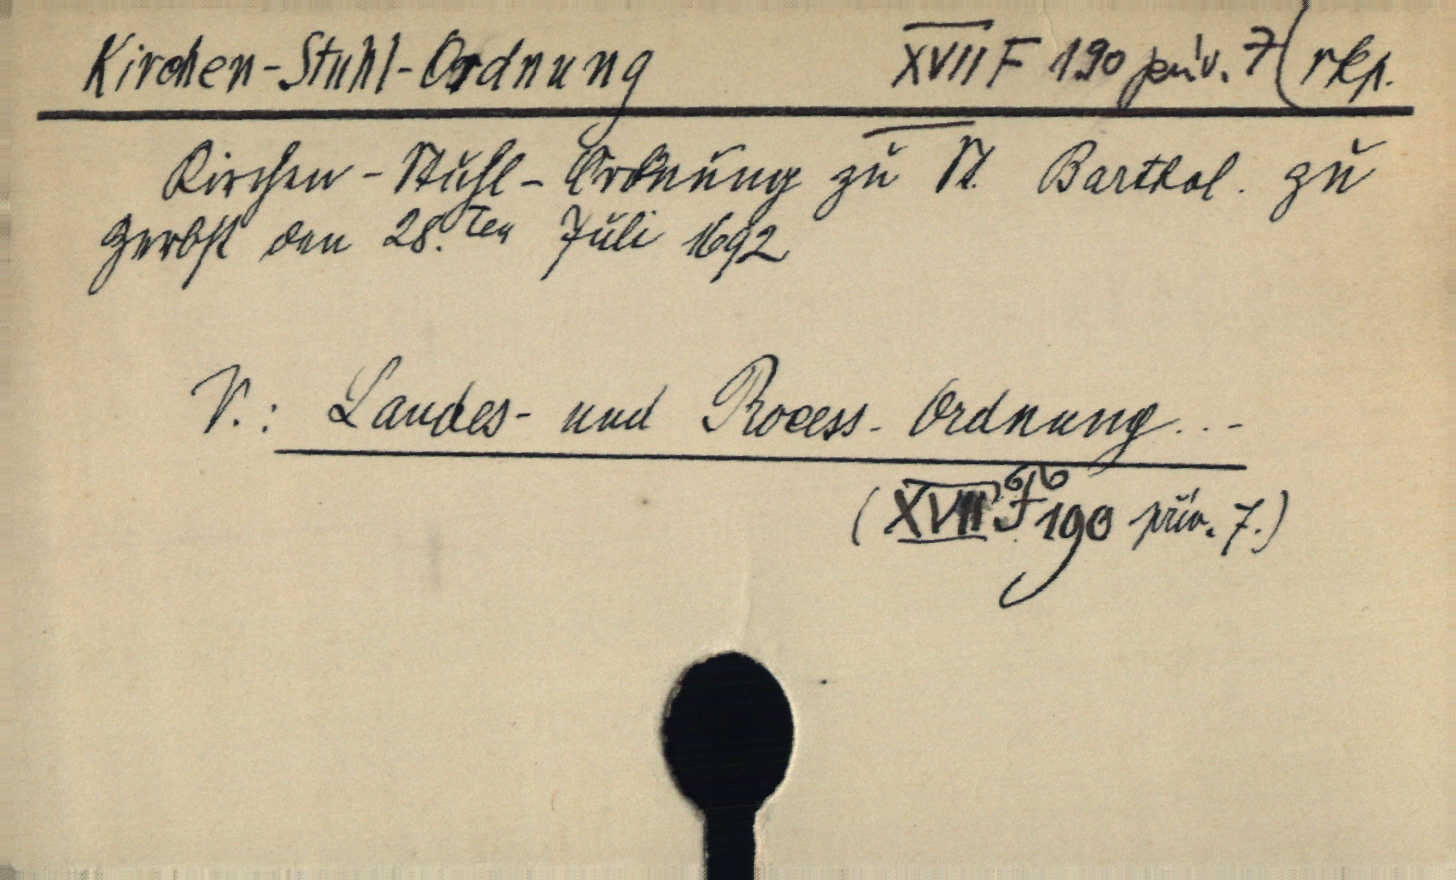 Kirchen-Stuhl-Ordnung XVII F 190 přív. 7 (rkp.
Kirchen-Stuhl-Ordnung zu St. Barthol. zu
Zerbst den 28.ten Juli 1692
V.: Landes- und Process-Ordnung...
(XVII F 190 přív. 7.)